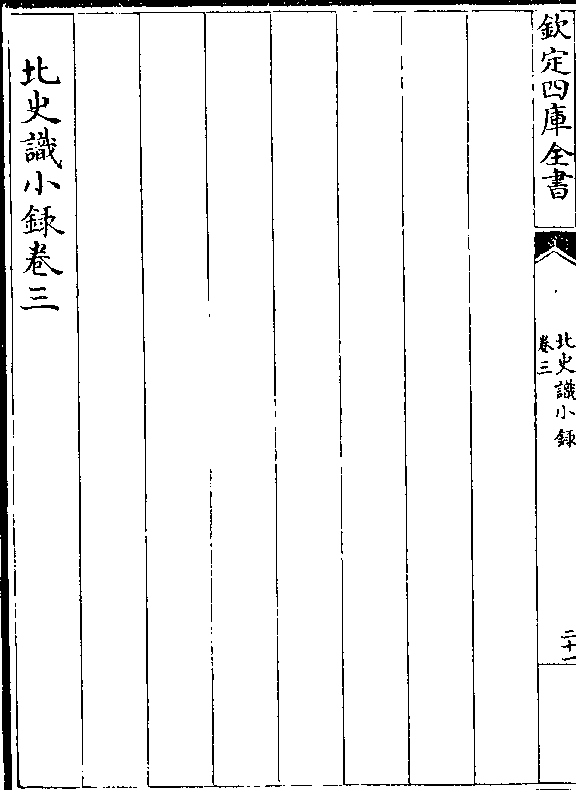 欽定四庫全書
北史識小録
卷三
二十一
北史識小録卷三